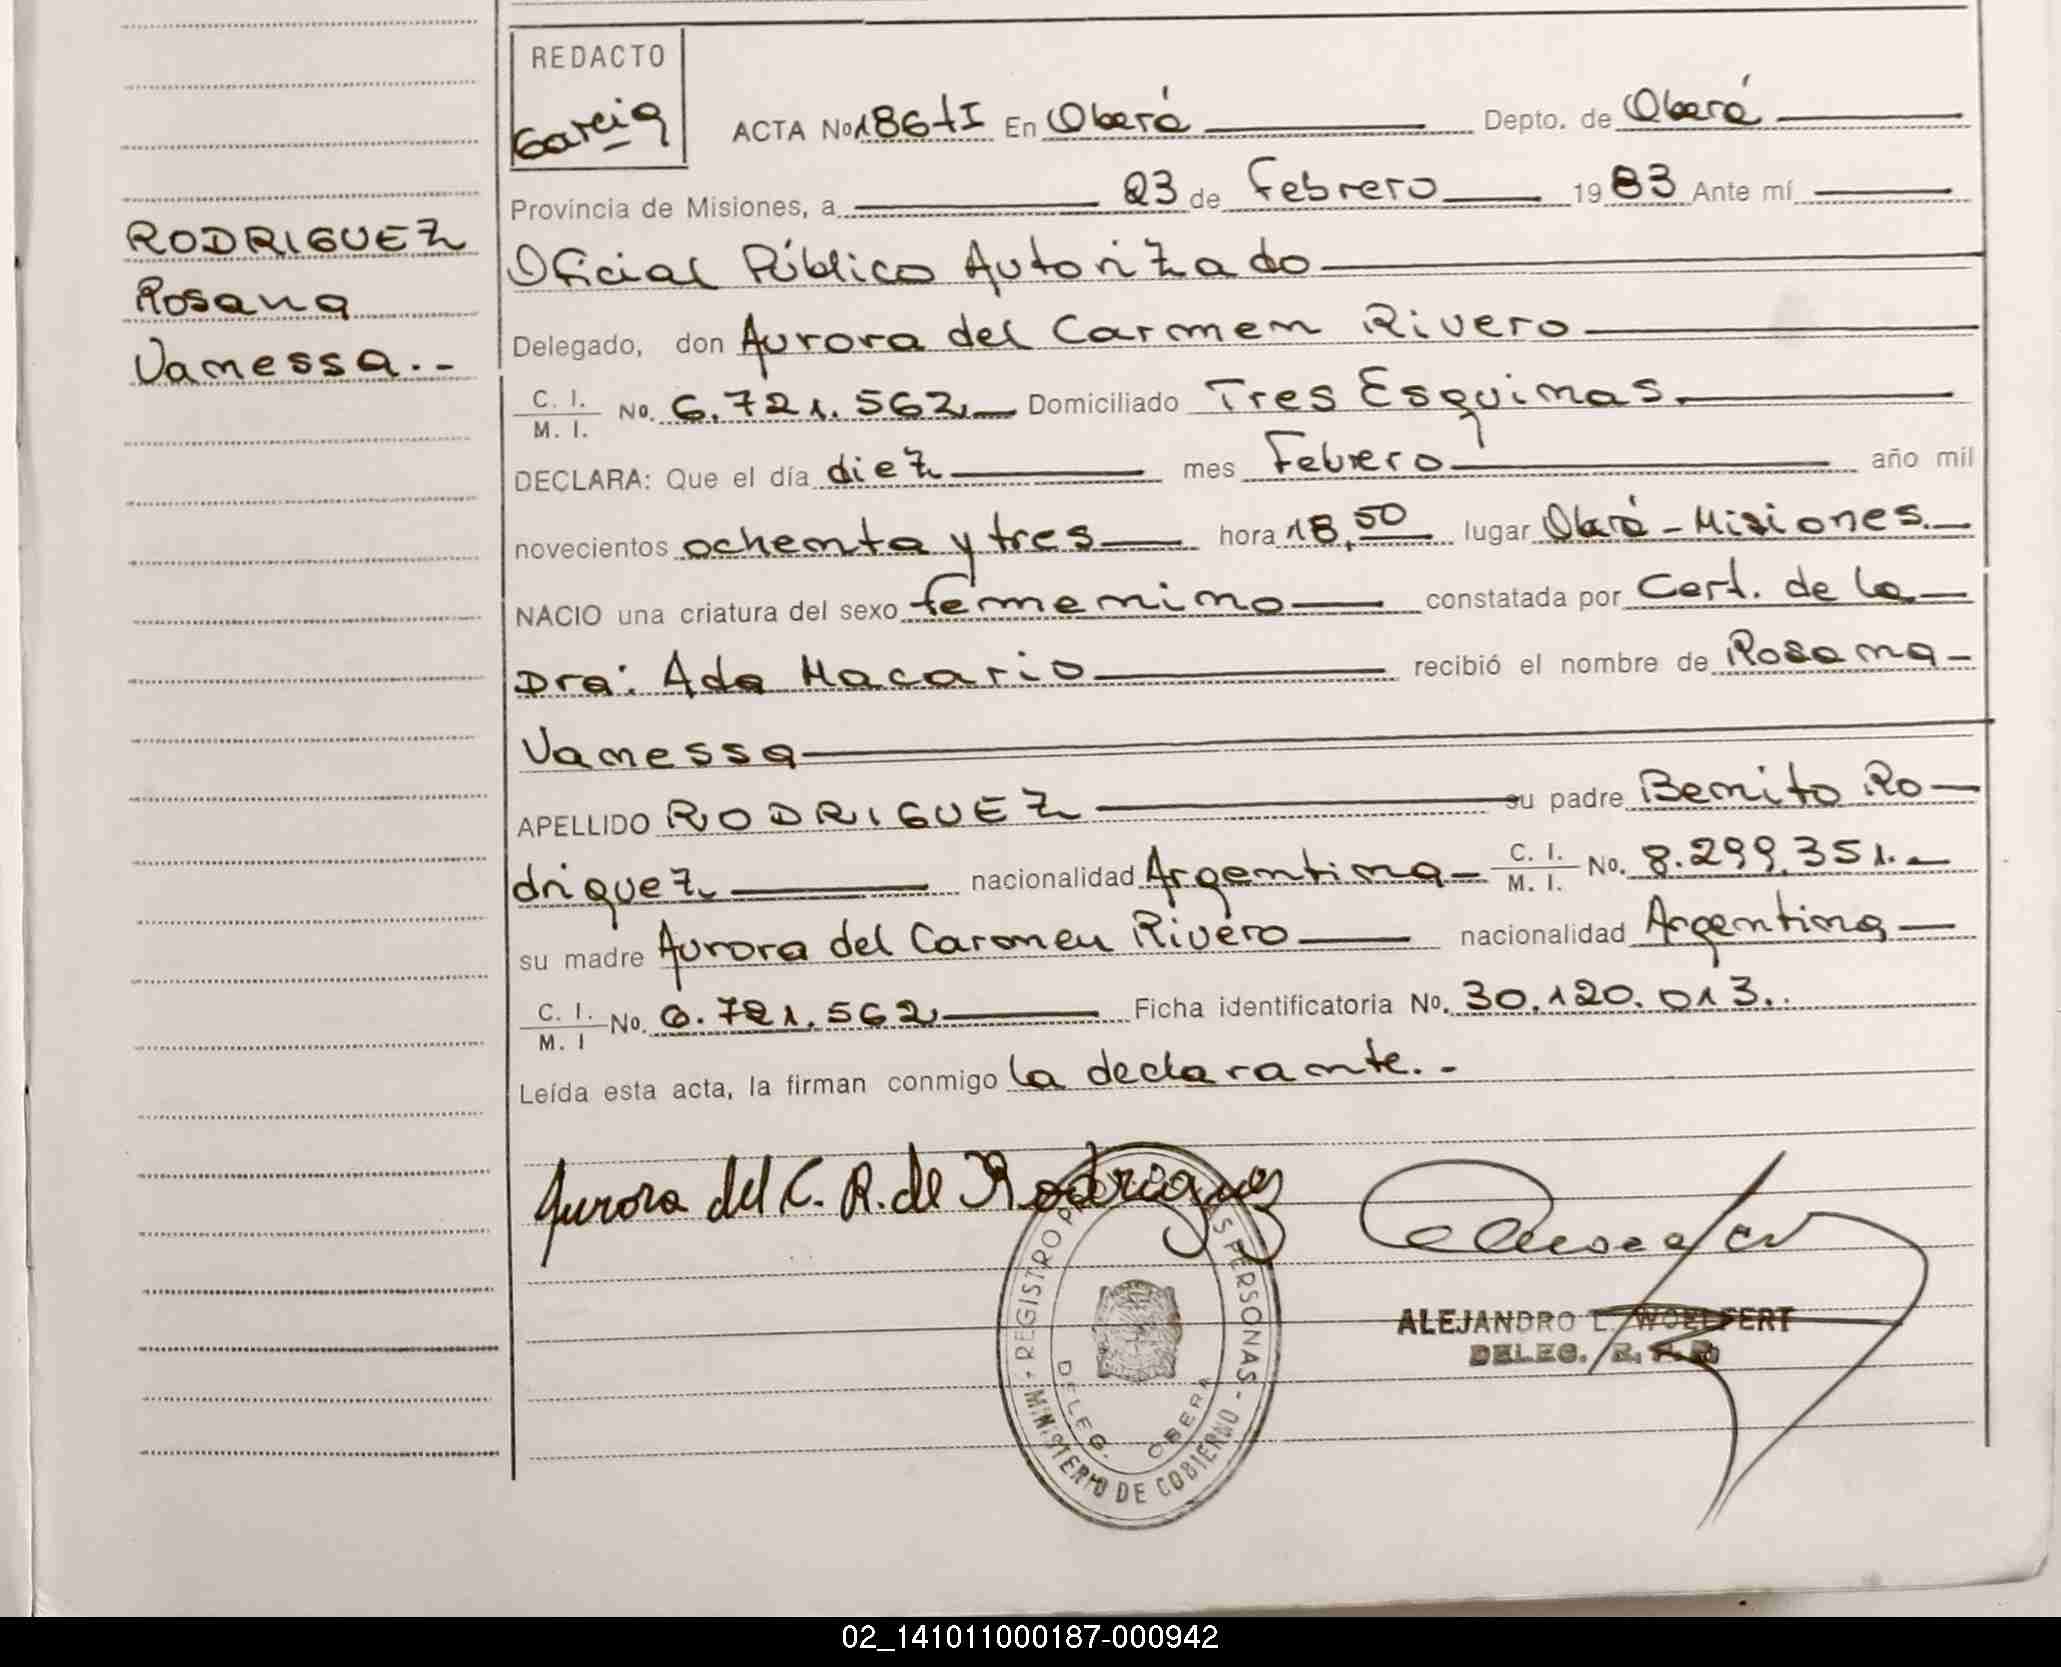 REDACTO
Garcia
ACTA No 186tI En Oberá Depto. de Oberá
Provincia de Misiones, a 23 de Febrero 1983 Ante mí
Oficial Público Autorizado
Delegado, don Aurora del Carmen Rivero
C. I. / M. I. No. 6.721.562 Domiciliado Tres Esquinas.
DECLARA: Que el día diez mes Febrero año mil
novecientos ochenta y tres hora 18,50 lugar Oberá - Misiones.
NACIO una criatura del sexo femenino constatada por Cert. de la
Dra: Ada Macario recibió el nombre de Rosana
Vanessa
APELLIDO RODRIGUEZ su padre Benito Ro-
driguez nacionalidad Argentina C. I. / M. I. No. 8.299.351.
su madre Aurora del Carmen Rivero nacionalidad Argentina
C. I. / M. I No. 6.721.562 Ficha identificatoria No. 30.120.013.
Leída esta acta, la firman conmigo la declarante.-
RODRIGUEZ
Rosana
Vanessa.-
Aurora del C. R. de Rodriguez
REGISTRO P AS PERSONAS - MINISTERIO DE GOBIERNO
DELEG. OBERA
ALEJANDRO L. WOELFERT
DELEG. R. P. P.
02_141011000187-000942